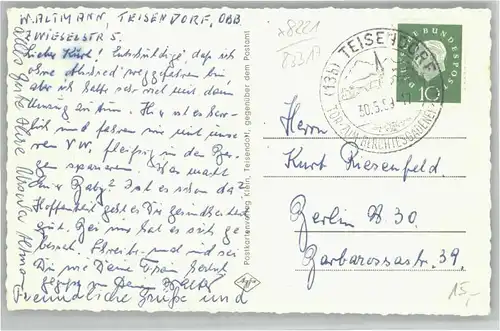 W. ALTMANN, TEISENDORF, OBB
ZWIESELSTR 5.
Lieber Kurt! Entschuldige, daß ich
ohne Abschied weggefahren bin,
aber ich hatte sehr viel mit dem
Umzug zu tun. Hier ist es herr-
lich und fahren wir mit unse-
ren VW, fleißig in den Ber-
gen spazieren. Was macht
Ihr Baby? Ist es schon da?
Hoffentlich geht es Dir gesundheitlich
gut. Bei uns hat es sich ge-
bessert. Schreibe und sei
Du wie Deine Frau herzl.
gegrüßt von Deinem Walter
Freundliche Grüße und
alles Gute Ihre Altmann
Postkartenverlag Klein, Teisendorf, gegenüber dem Postamt
Agfa
x8221
83317
(13b) TEISENDORF
30.5.59
BERCHTESGADEN
DEUTSCHE BUNDESPOST
10
Herrn
Kurt Riesenfeld
Berlin W 30.
Barbarossastr. 39.
15,-